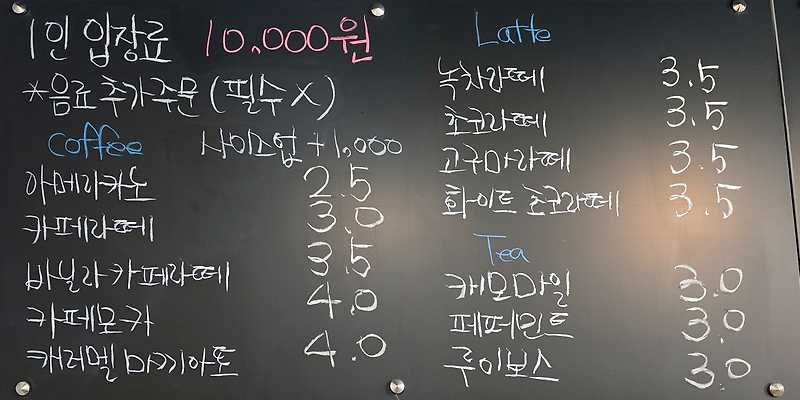 1인 입장료 10,000원
*음료 추가 주문 (필수 X)
Coffee 사이즈업 +1,000
아메리카노 2.5
카페라떼 3.0
바닐라 카페라떼 3.5
카페모카 4.0
캐러멜 마끼아또 4.0
Latte
녹차라떼 3.5
초코라떼 3.5
고구마라떼 3.5
화이트 초코라떼 3.5
Tea
캐모마일 3.0
페퍼민트 3.0
루이보스 3.0